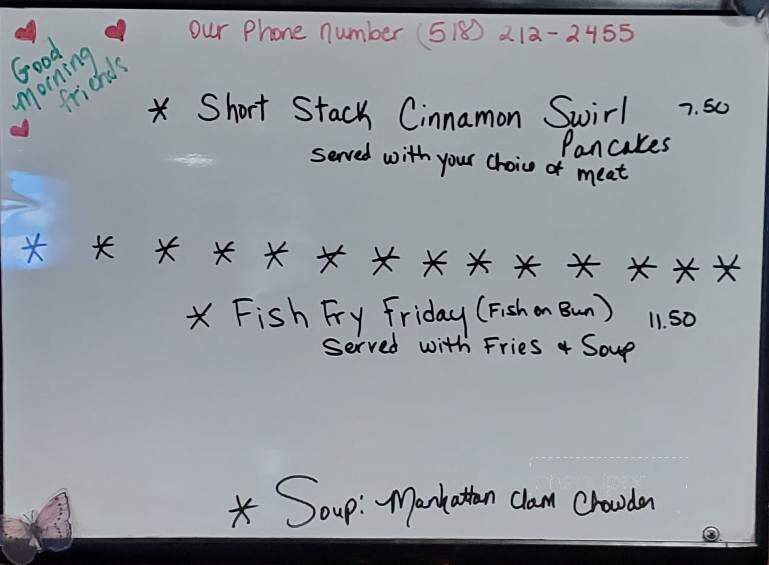 Our Phone number (518) 212-2455
Good
morning
friends
* Short Stack Cinnamon Swirl 7.50
Pancakes
Served with your choice of meat
* * * * * * * * * * * * * *
* Fish Fry Friday (Fish on Bun) 11.50
Served with Fries & Soup
* Soup: Manhattan Clam Chowder